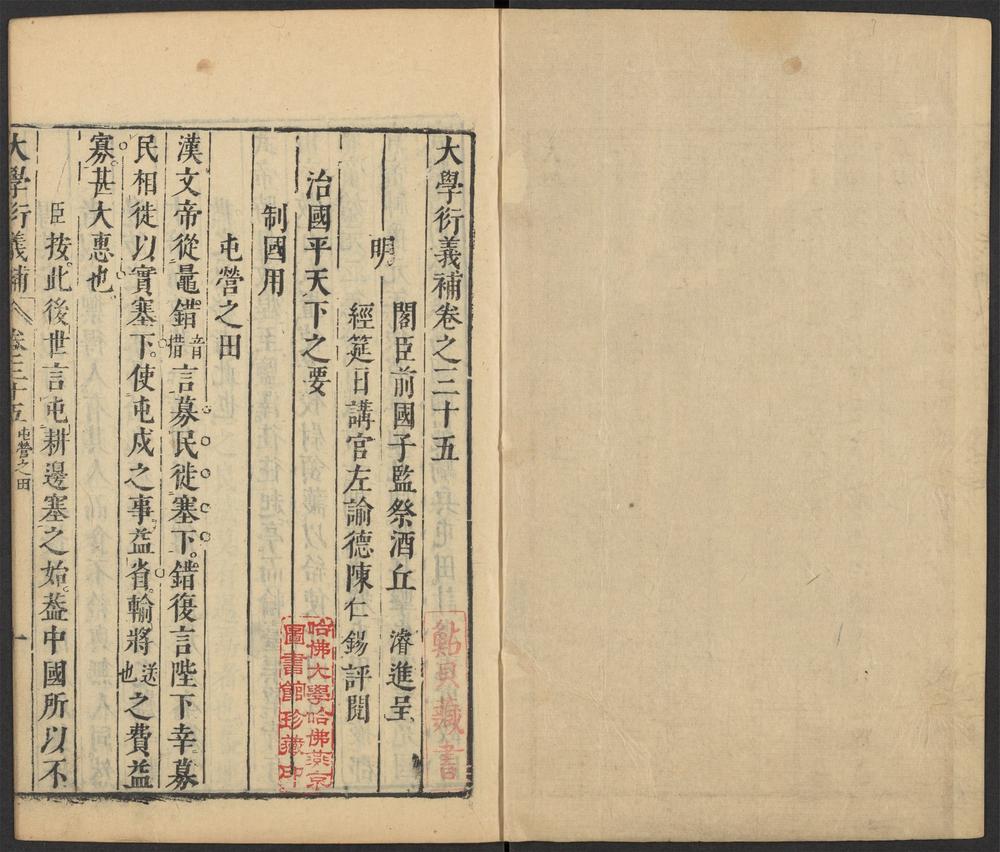 大學衍義補卷之三十五
明
閣臣前國子監祭酒丘濬進呈
經筵日講官左諭德陳仁錫評閱
治國平天下之要
制國用
屯營之田
漢文帝從鼂錯音措言募民徙塞下錯復言陛下幸募
民相徙以實塞下使屯戍之事益省輸將送也之費益
寡甚大惠也
臣按此後世言屯耕邊塞之始葢中國所以不
大學衍義補
卷三十五
屯營之田
一
哈佛大學哈佛燕京
圖書館珍藏印
藏書